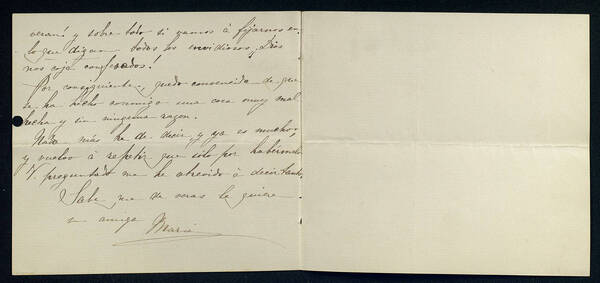 verani y sobre todo si vamos á fijarnos en
lo que digan todos los envidiosos, ¡Dios
nos coja confesados!
Por consiguiente, quedo convencida de que
se ha hecho conmigo una cosa muy mal
hecha y sin ninguna razon.
Nada más he de decir, y ya es mucho,
y vuelvo á repetir que sólo por habermelo
V. preguntado me he atrevido á decir tanto.
Sabe que de veras le quiere
su amiga
Maria